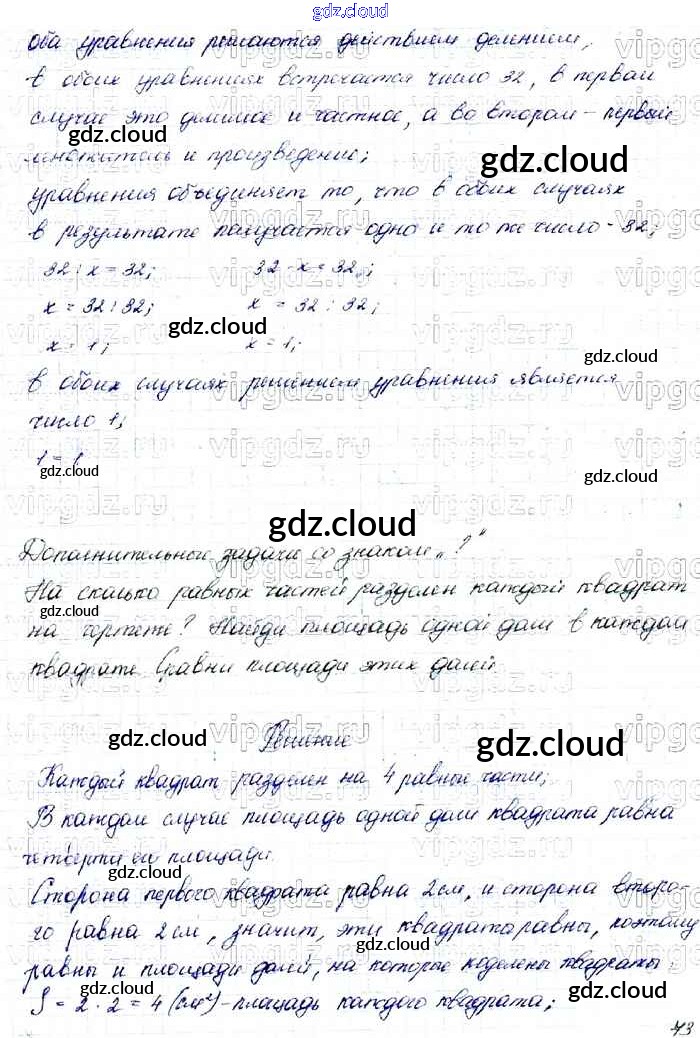 gdz.cloud
оба уравнения решаются действием делением,
в обоих уравнениях встречается число 32, в первом
случае это делимое и частное, а во втором - первый
множитель и произведение;
уравнения объединяет то, что в обоих случаях
в результате получается одно и то же число - 32;
32 : x = 32; 32 · x = 32;
x = 32 : 32; x = 32 : 32;
x = 1; x = 1;
В обоих случаях решением уравнения является
число 1;
1 = 1
Дополнительные задачи со знаком „!"
На сколько равных частей разделен каждый квадрат
на чертеже? Найди площадь одной доли в каждом
квадрате. Сравни площади этих долей.
Решение
Каждый квадрат разделен на 4 равные части;
В каждом случае площадь одной доли квадрата равна
четверти его площади.
Сторона первого квадрата равна 2 см, и сторона второ-
го равна 2 см, значит, эти квадраты равны, поэтому
равны и площади долей, на которые поделены квадраты:
S = 2 · 2 = 4 (см²) - площадь каждого квадрата;
73